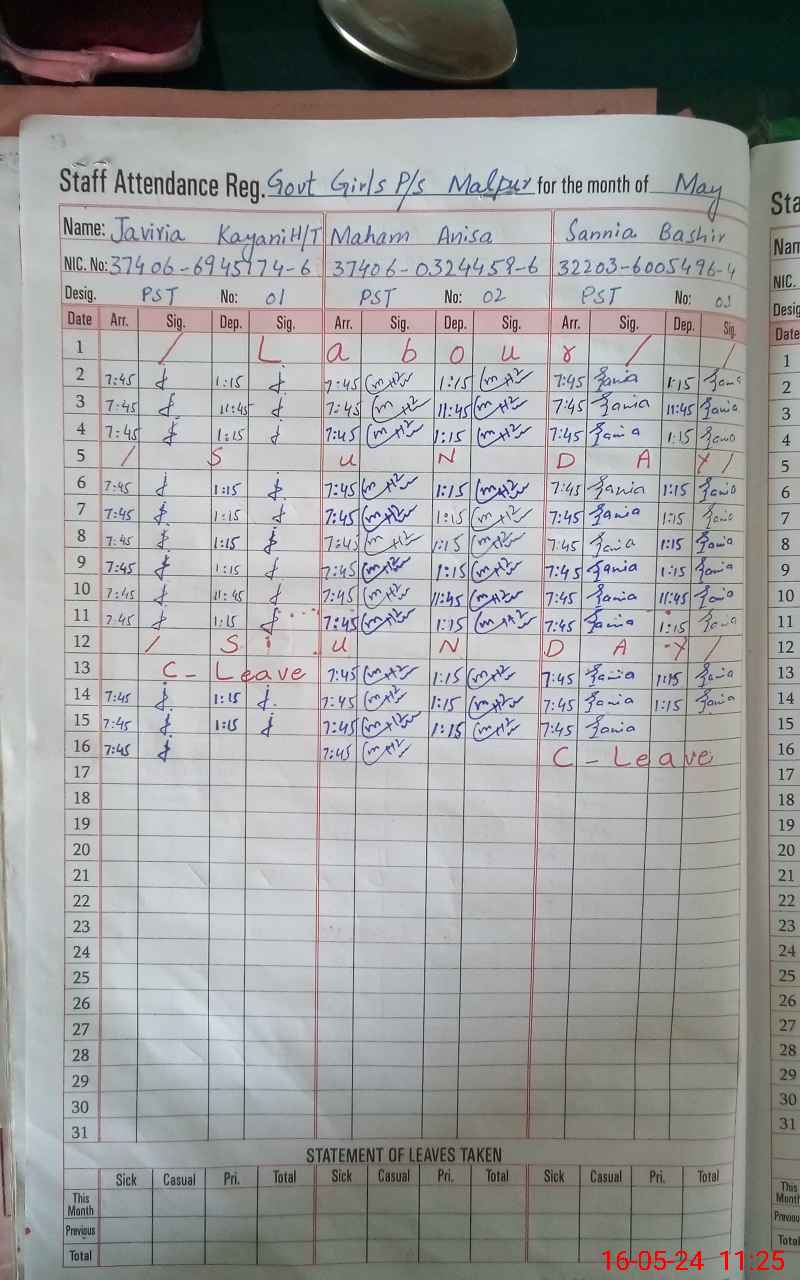 Staff Attendance Reg. Govt Girls P/s Malpur for the month of May
Name: Javiria Kayani H/T Maham Anisa Sannia Bashir
NIC. No: 37406-6945774-6 37406-0324458-6 32203-6005496-4
Desig. PST No: 01 PST No: 02 PST No: 03
Date Arr. Sig. Dep. Sig. Arr. Sig. Dep. Sig. Arr. Sig. Dep. Sig.
1 / L a b o u r / /
2 7:45 1:15 7:45 1:15 7:45 Sania 1:15 Sania
3 7:45 11:45 7:45 11:45 7:45 Sania 11:45 Sania
4 7:45 1:15 7:45 1:15 7:45 Sania 1:15 Sania
5 / S u N D A Y /
6 7:45 1:15 7:45 1:15 7:45 Sania 1:15 Sania
7 7:45 1:15 7:45 1:15 7:45 Sania 1:15 Sania
8 7:45 1:15 7:45 1:15 7:45 Sania 1:15 Sania
9 7:45 1:15 7:45 1:15 7:45 Sania 1:15 Sania
10 7:45 11:45 7:45 11:45 7:45 Sania 11:45 Sania
11 7:45 1:15 7:45 1:15 7:45 Sania 1:15 Sania
12 / S u N D A Y /
13 C - Leave 7:45 1:15 7:45 Sania 1:15 Sania
14 7:45 1:15 7:45 1:15 7:45 Sania 1:15 Sania
15 7:45 1:15 7:45 1:15 7:45 Sania
16 7:45 7:45 C - Leave
17
18
19
20
21
22
23
24
25
26
27
28
29
30
31
STATEMENT OF LEAVES TAKEN
Sick Casual Pri. Total Sick Casual Pri. Total Sick Casual Pri. Total
This Month
Previous
Total
Sta
Nam
NIC.
Desig
Date
1
2
3
4
5
6
7
8
9
10
11
12
13
14
15
16
17
18
19
20
21
22
23
24
25
26
27
28
29
30
31
This
Month
Previou
Total
16-05-24 11:25